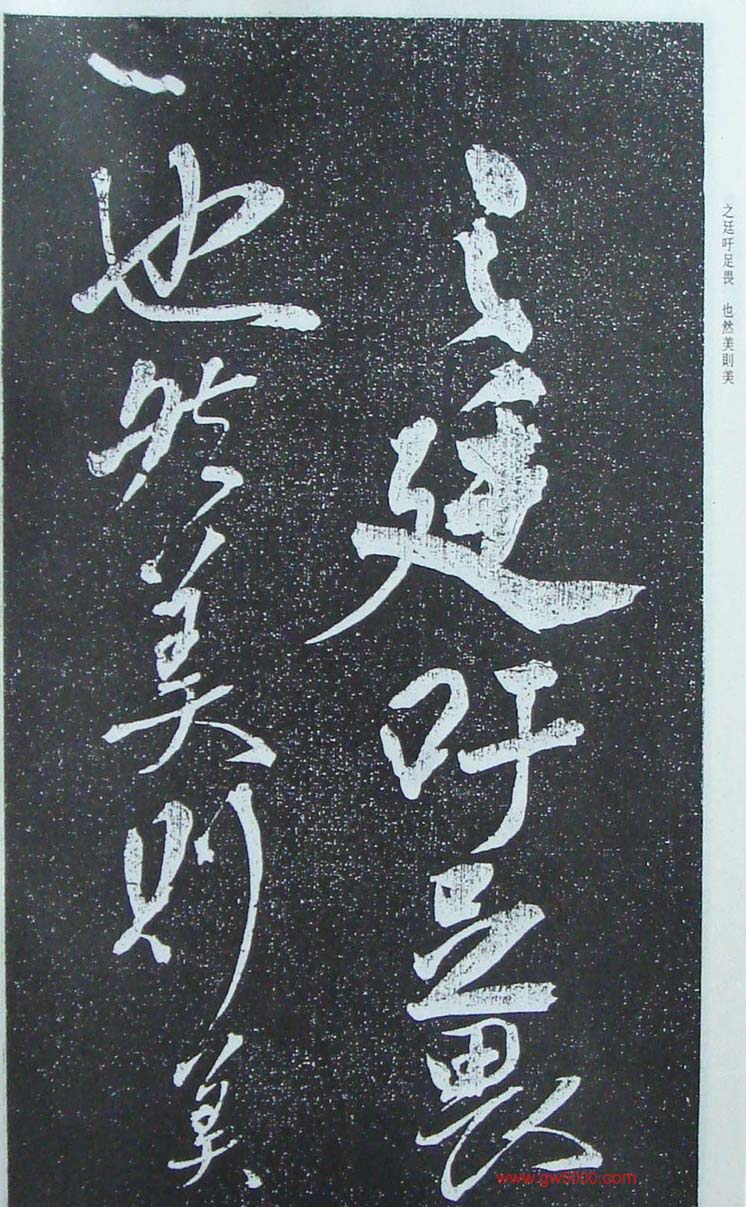 之廷吁足畏
也然美則美
之廷吁足畏　也然美則美
www.gw5000.com